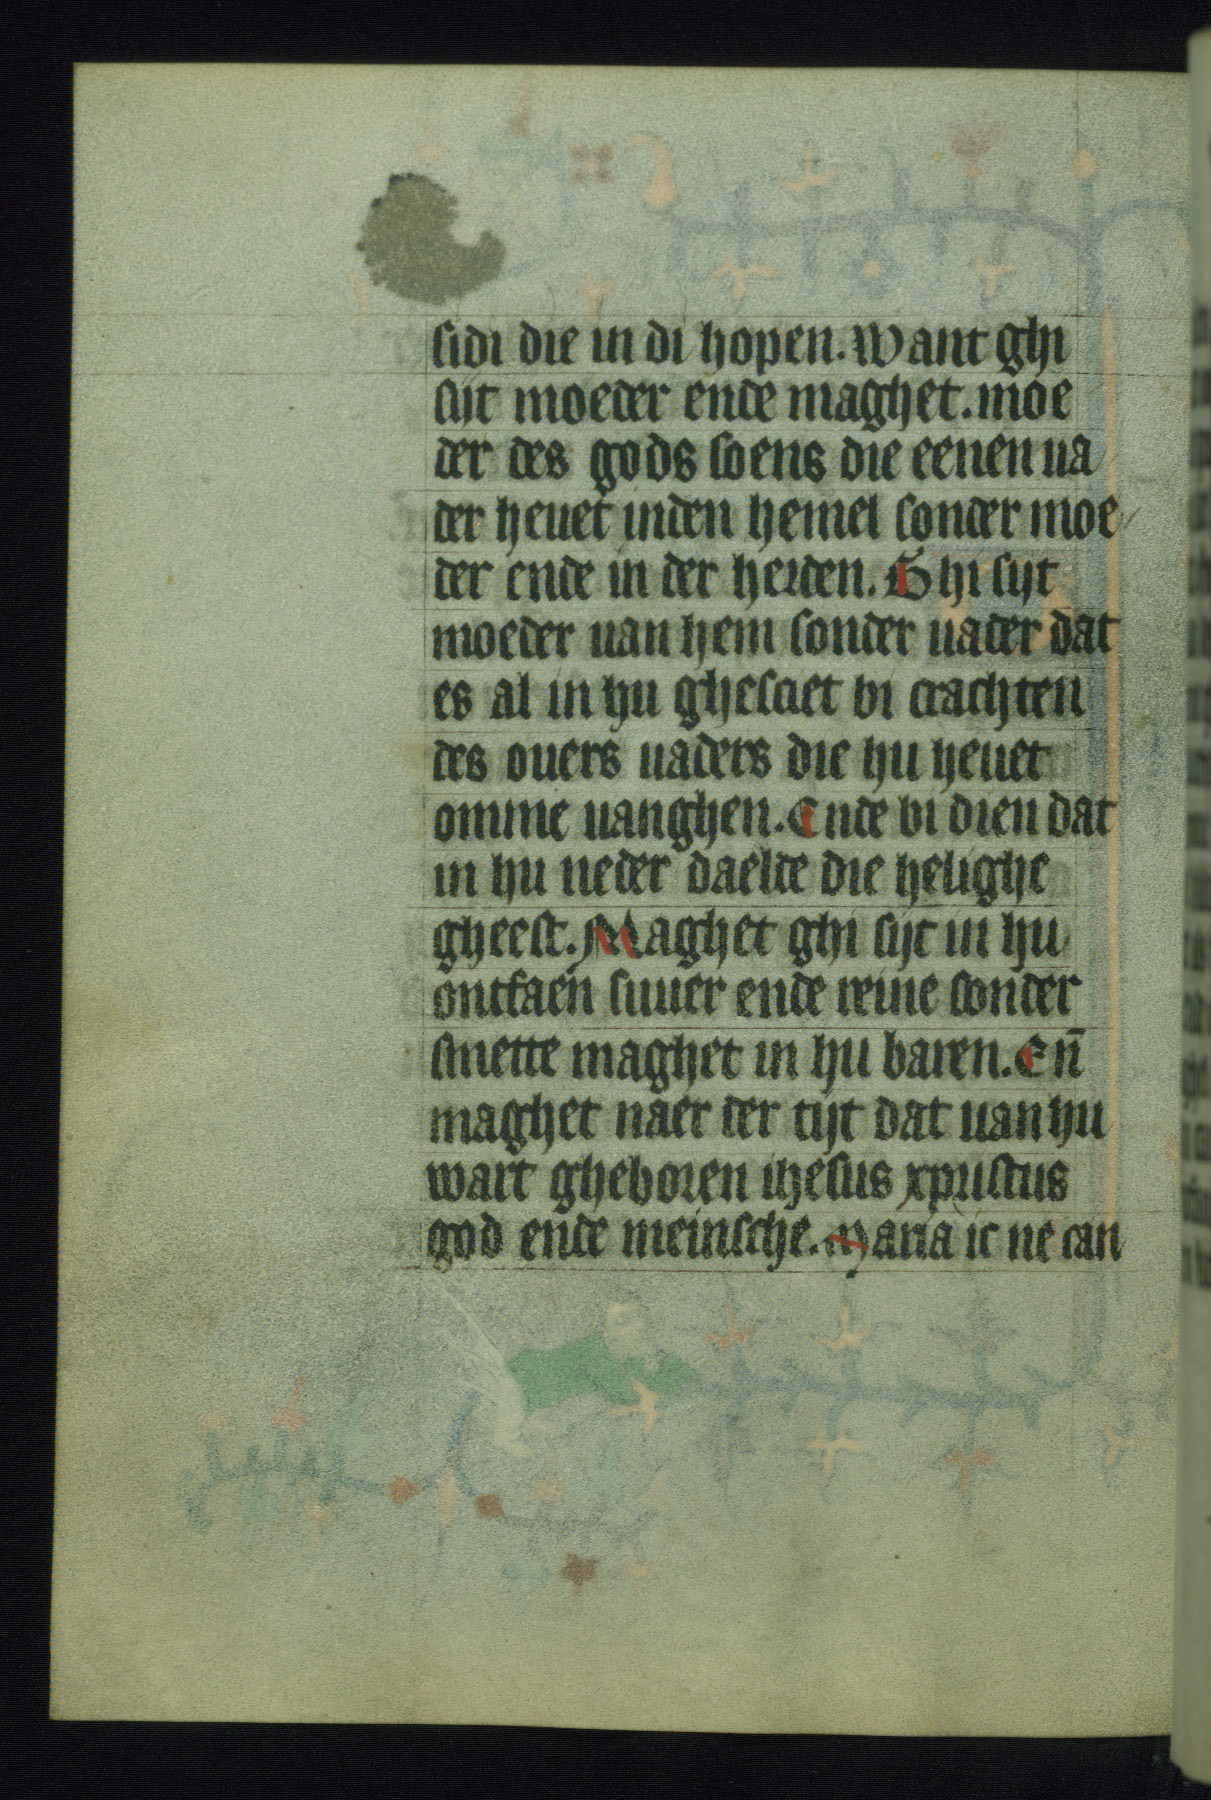 sidi die in di hopen. Want ghi
sijt moeder ende maghet. moe
der des gods soens die eenen ua
der heuet inden hemel sonder moe
der ende in der herden. Ghi sijt
moeder uan hem sonder uader dat
es al in hu ghesciet bi crachten
des ouers uaders die hu heuet
omme uanghen. Ende bi dien dat
in hu neder daelde die helighe
gheest. Maghet ghi sijt in hu
ontfaen suuer ende reine sonder
smette maghet in hu baren. En̄
maghet naer der tijt dat uan hu
wart gheboren ihesus xpristus
god ende meinsche. Maria ic ne can